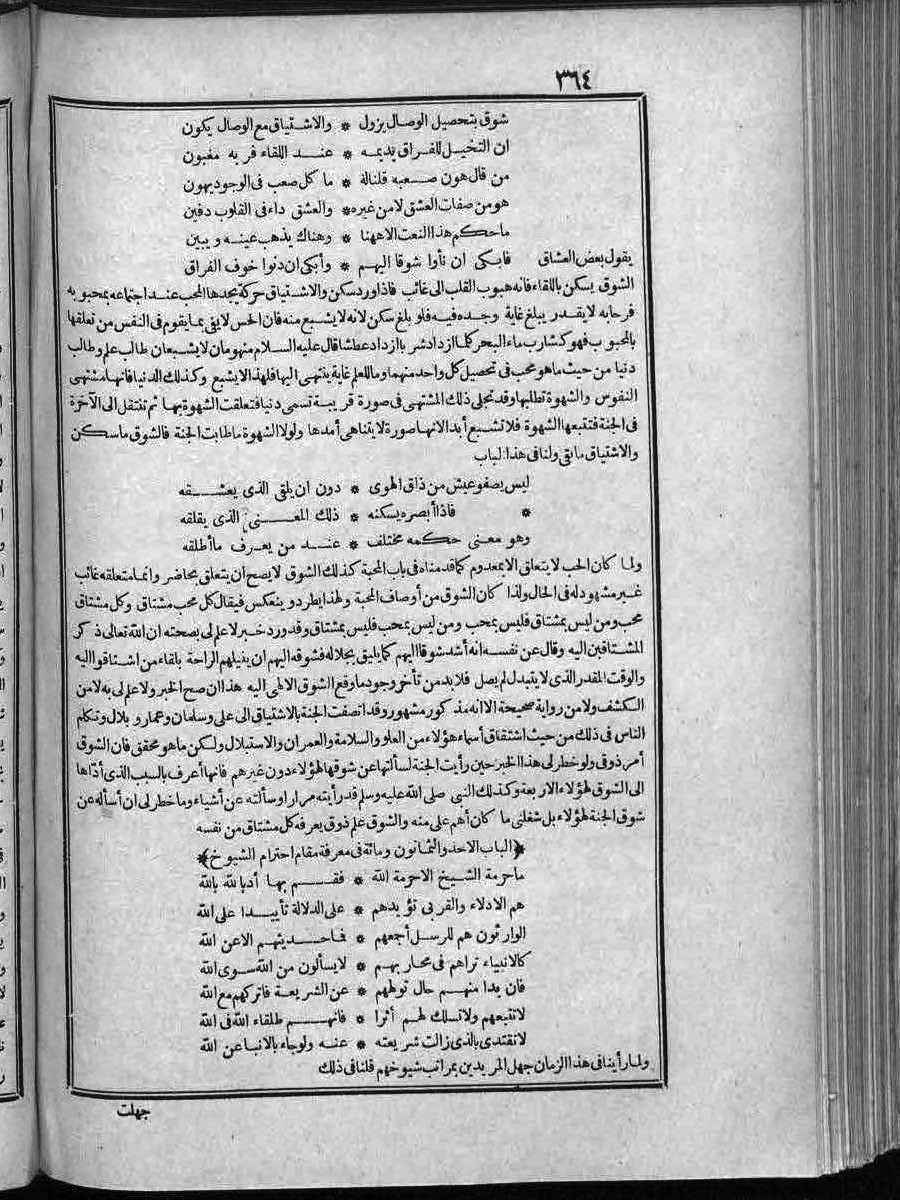 ٣٦٤
شوق بتحصيل الوصال يزول * والاشتياق مع الوصال يكون
ان التخيل للفراق يديمه * عند اللقاء فربه مغبون
من قال هون صعبه قلناله * ما كل صعب فى الوجود يهون
هو من صفات العشق لا من غيره * والعشق داء فى القلوب دفين
ما حكم هذا النعت الا ههنا * وهناك يذهب عينه ويبين
يقول بعض العشاق فابكى ان نأوا شوقا اليهم * وأبكى ان دنوا خوف الفراق
الشوق يسكن باللقاء فانه هبوب القلب الى غائب فاذا ورد سكن والاشتياق حركة يجدها المحب عند اجتماعه بمحبوبه
فرحا به لا يقدر يبلغ غاية وجده فيه فلو بلغ سكن لانه لا يشبع منه فان الحس لا يفى بما يقوم فى النفس من تعلقها
بالمحبوب فهو كشارب ماء البحر كلما ازداد شربا ازداد عطشا قال عليه السلام منهومان لا يشبعان طالب علم وطالب
دنيا من حيث ما هو محب فى تحصيل كل واحد منهما وما للعلم غاية ينتهى اليها فلهذا لا يشبع وكذلك الدنيا فانها مشتهى
النفوس والشهوة تطلبها وقد تجلى ذلك المشتهى فى صورة قريبة تسمى دنيا فتعلقت الشهوة بها ثم تنتقل الى الآخرة
فى الجنة فتتبعها الشهوة فلا تشبع أبدا لانها صورة لا يتناهى أمدها ولولا الشهوة ما طابت الجنة فالشوق ما سكن
والاشتياق ما بقى ولنا فى هذا الباب
ليس يصفو عيش من ذاق الهوى * دون ان يلقى الذى يعشقه
* فاذا أبصره يسكنه * ذلك المعنى الذى يقلقه
وهو معنى حكمه مختلف * عند من يعرف ما أطلقه
ولما كان الحب لا يتعلق الا بمعدوم كما قدمناه فى باب المحبة كذلك الشوق لا يصح ان يتعلق بحاضر وانما متعلقه غائب
غير مشهود له فى الحال ولذا كان الشوق من أوصاف المحبة ولهذا يطرد وينعكس فيقال كل محب مشتاق وكل مشتاق
محب ومن ليس بمشتاق فليس بمحب ومن ليس بمحب فليس بمشتاق وقد ورد خبر لا علم لى بصحته ان الله تعالى ذكر
المشتاقين اليه وقال عن نفسه انه أشد شوقا اليهم كما يليق بجلاله فشوقه اليهم ان ينيلهم الراحة بلقاء من اشتاقوا اليه
والوقت المقدر الذى لا يتبدل لم يصل فلا بد من تأخر وجود ما وقع الشوق الالهى اليه هذا ان صح الخبر ولا علم لى به لا من
الكشف ولا من رواية صحيحة الا انه مذكور مشهور وقد اتصفت الجنة بالاشتياق الى على وسلمان وعمار وبلال وتكلم
الناس فى ذلك من حيث اشتقاق أسماء هؤلاء من العلو والسلامة والعمران والاستبلال ولكن ما هو محقق فان الشوق
أمر ذوقى ولو خطر لى هذا الخبر حين رأيت الجنة لسألتها عن شوقها لهؤلاء دون غيرهم فانها أعرف بالسبب الذى أداها
الى الشوق لهؤلاء الاربعة وكذلك النبى صلى الله عليه وسلم قد رأيته مرارا وسألته عن أشياء وما خطر لى ان أسأله عن
شوق الجنة لهؤلاء بل شغلنى ما كان أهم على منه والشوق علم ذوق يعرفه كل مشتاق من نفسه
﴿الباب الاحد والثمانون ومائة فى معرفة مقام احترام الشيوخ﴾
ما حرمة الشيخ الا حرمة الله * فقم بها أدبا لله بالله
هم الادلاء والقربى تؤيدهم * على الدلالة تأييدا على الله
الوارثون هم للرسل أجمعهم * فما حديثهم الا عن الله
كالانبياء تراهم فى محاربهم * لا يسألون من الله سوى الله
فان بدا منهم حال تولههم * عن الشريعة فاتركهم مع الله
لا تتبعهم ولا تسلك لهم أثرا * فانهم طلقاء الله فى الله
لا تقتدى بالذى زالت شريعته * عنه ولو جاء بالانبا عن الله
ولما رأينا فى هذا الزمان جهل المريدين بمراتب شيوخهم قلنا فى ذلك
جهلت